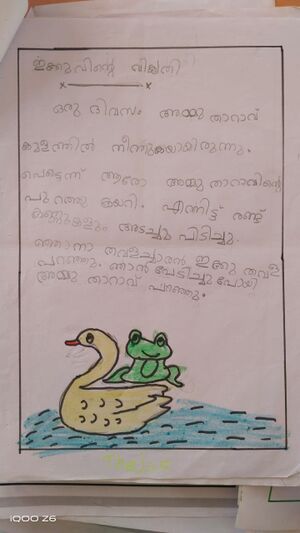 ഇക്കുവിന്റെ വികൃതി
ഒരു ദിവസം അമ്മു താറാവ്
കുളത്തിൽ നീന്തുകയായിരുന്നു.
പെട്ടെന്ന് ആരോ അമ്മു താറാവിന്റെ
പുറത്തു കയറി. എന്നിട്ട് രണ്ട്
കണ്ണുകളും അടച്ചു പിടിച്ചു.
ഞാനാ തവളച്ചാരൻ ഇക്കു തവള
പറഞ്ഞു. ഞാൻ പേടിച്ചു പോയി
അമ്മു താറാവ് പറഞ്ഞു.
iQOO Z6